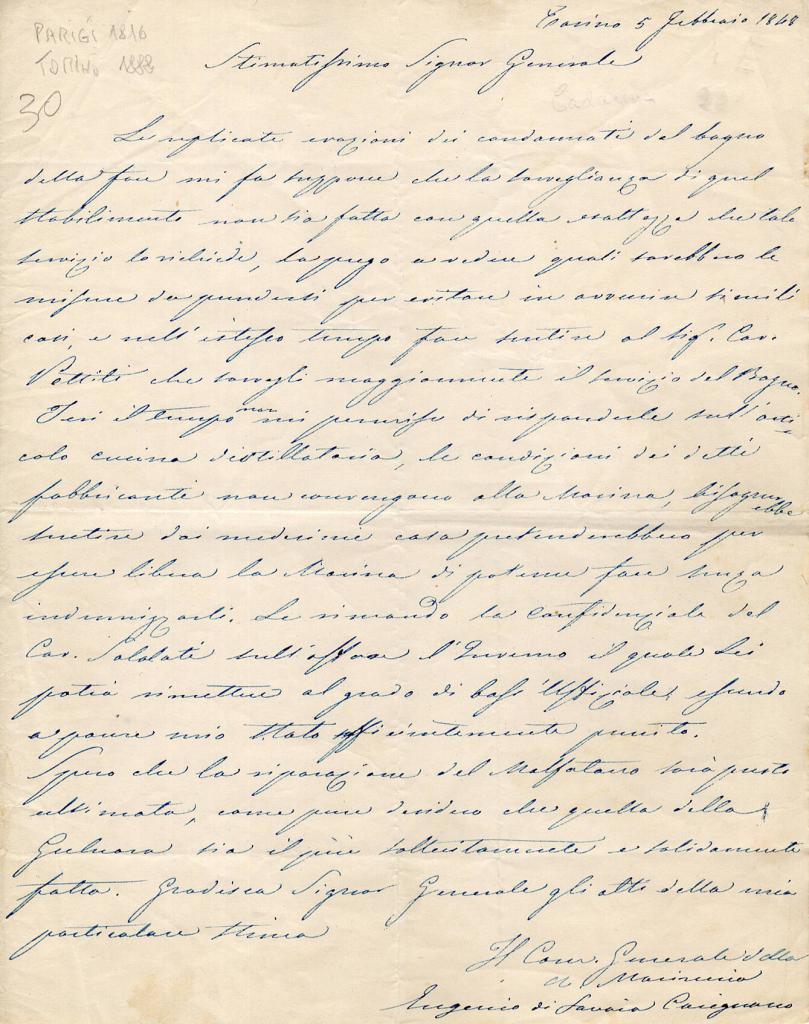 PARIGI 1816
TORINO 1888
30
Torino 5 Febbraio 1848
Stimatissimo Signor Generale
Le replicate evazioni dei condannati dal bagno
della fare mi fa suppore che la sorveglianza di quel
stabilimento non sia fatta con quella esattezza che tale
servizio lo richiede, la prego a vedere quali sarebbero le
misure da prendersi per evitare in avvenire simili
casi, e nell'istesso tempo fare sentire al Sig. Cav.
che sorvegli maggiormente il servizio del Bagno.
Jeri il tempo non mi permise di risponderle sull'arti=
colo cucina distillatoria, le condizioni dei detti
fabbricanti non convengono alla Marina, bisognerebbe
sentire dai medesimi cosa pretenderebbero per
essere libera la Marina di poterne fare senza
indennizzarli. Le rimando la confidenziale del
Cav. sull'affare il quale Lei
potrà rimettere al grado di bass'Uffiziale, essendo
a parere mio stato sufficientemente punito.
Spero che la riparazione del Malfatano sarà presto
ultimata, come pure desidero che quella della
Gulnara sia il più sollecitamente e solidamente
fatta. Gradisca Signor Generale gli atti della mia
particolare stima
Il Com. Generale della
Marina
Eugenio di Savoia Carignano